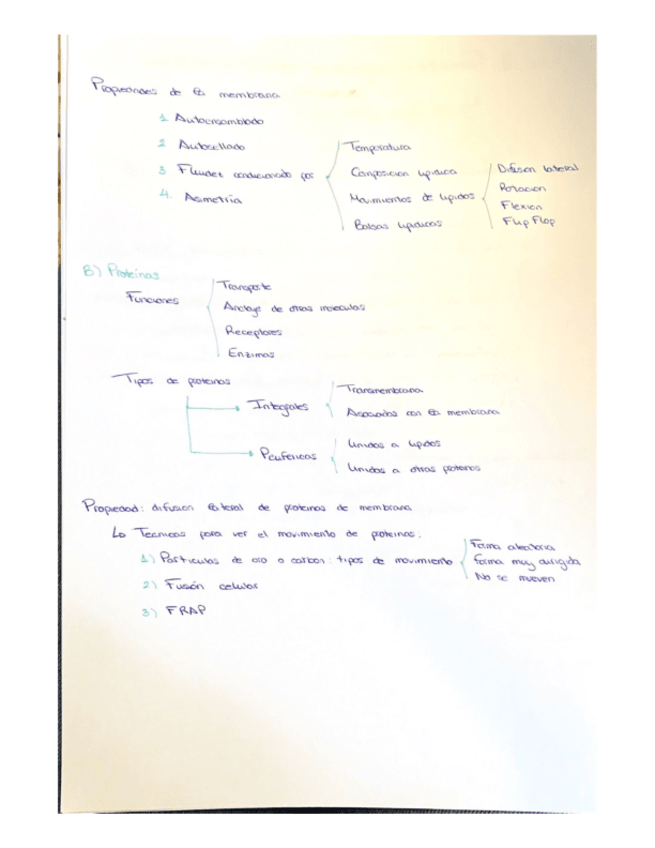 Propiedades de la membrana
1. Autoensamblado
2 Autosellado
3 Fluidez condicionada por
Temperatura
Composicion lipidica
Movimientos de lipidos
Difusion lateral
Rotacion
Flexion
Flip Flop
Balsas lipidicas
4. Asimetría
B) Proteínas
Funciones
Transporte
Anclaje de otras moleculas
Receptores
Enzimas
Tipos de proteinas
Integrales
Transmembrana
Asociadas con la membrana
Perifericas
Unidas a lipidos
Unidas a otras proteinas
Propiedad: difusion lateral de proteinas de membrana
Lo Tecnicas para ver el movimiento de proteinas:
1) Particulas de oro o carbon: tipos de movimiento
Forma aleatoria
Forma muy dirigida
No se mueven
2) Fusión celular
3) FRAP